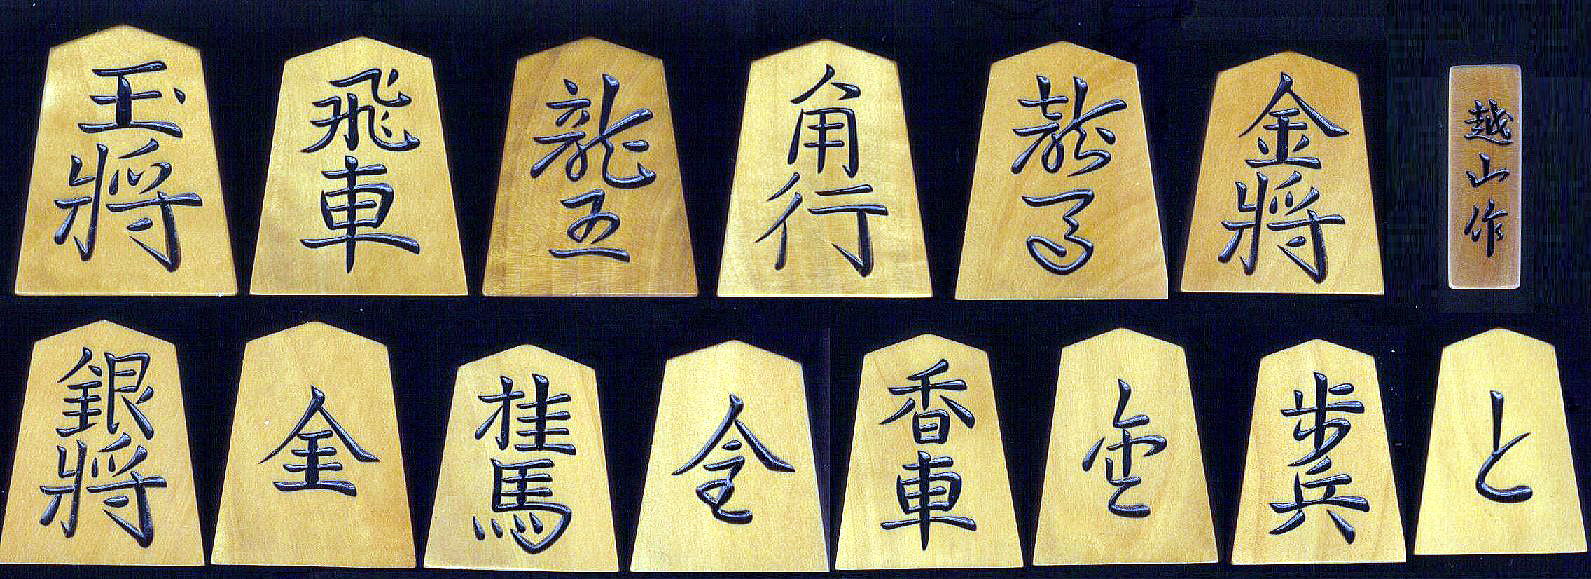 玉將
飛車
龍王
角行
龍馬
金將
越山作
銀將
金
桂馬
金
香車
金
歩兵
と